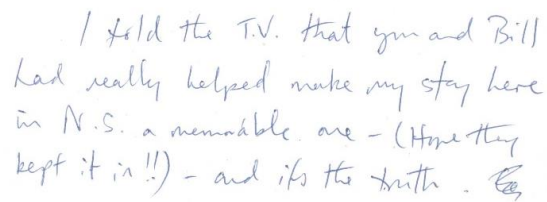 I told the T.V. that you and Bill
had really helped make my stay here
in N.S. a memorable one - (Hope they
kept it in!!) - and it's the truth.